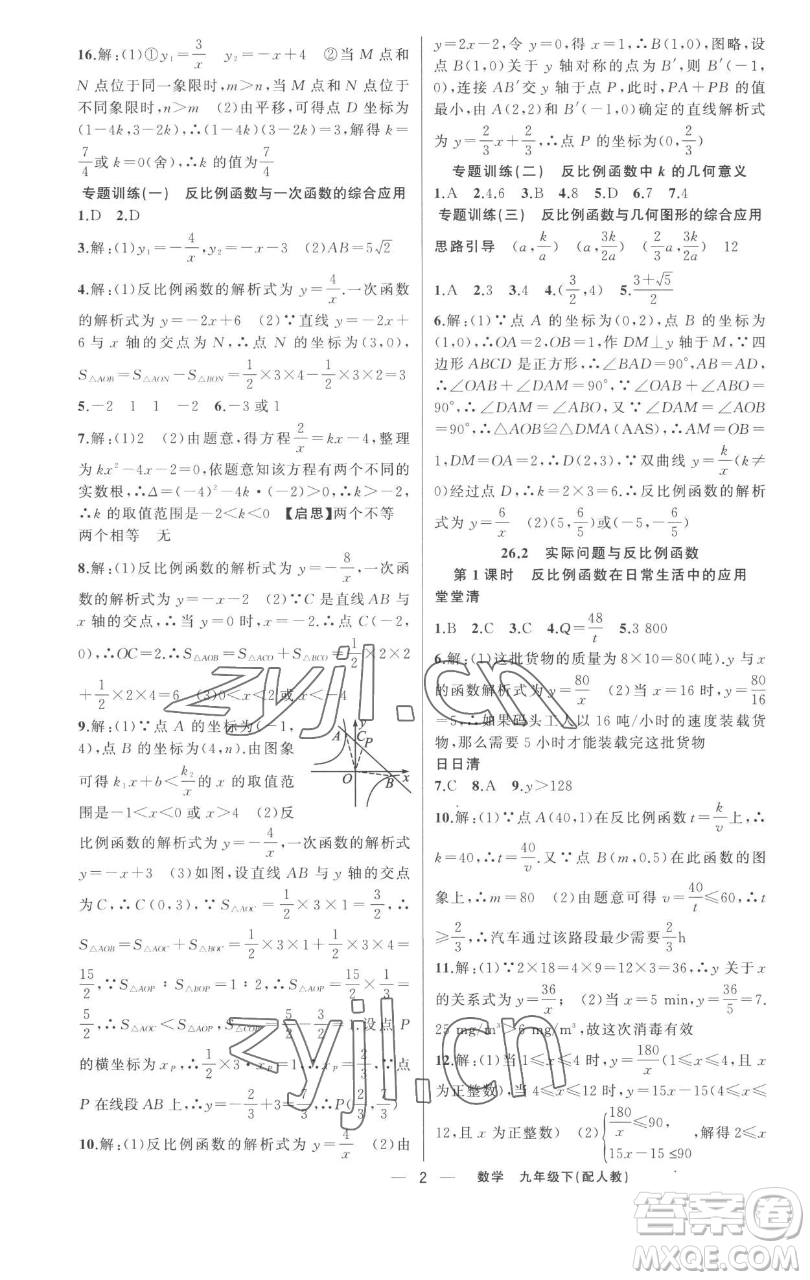 16.解:(1)①y₁=3/x　y₂=-x+4　②当 M 点和
N 点位于同一象限时,m>n,当 M 点和 N 点位于
不同象限时,n>m　(2)由平移,可得点 D 坐标为
(1-4k,3-2k),∴(1-4k)(3-2k)=3,解得 k=
7/4或 k=0(舍),∴k 的值为7/4
专题训练(一)　反比例函数与一次函数的综合应用
1.D　2.D
3.解:(1)y₁=-4/x,y₂=-x-3　(2)AB=5√2
4.解:(1)反比例函数的解析式为 y=4/x.一次函数
的解析式为 y=-2x+6　(2)∵直线 y=-2x+
6 与 x 轴的交点为 N,∴点 N 的坐标为(3,0),
S△AOB=S△AON-S△BON=1/2×3×4-1/2×3×2=3
5.-2　1　1　-2　6.-3或1
7.解:(1)2　(2)由题意,得方程2/x=kx-4,整理
为 kx²-4x-2=0,依题意知该方程有两个不同的
实数根,∴Δ=(-4)²-4k·(-2)>0,∴k>-2,
∴k 的取值范围是-2<k<0　【启思】两个不等
两个相等　无
8.解:(1)反比例函数的解析式为 y=-8/x,一次函
数的解析式为 y=-x-2　(2)∵C 是直线 AB 与
x 轴的交点,∴当 y=0 时,x=-2.∴点 C(-2,
0),∴OC=2.∴S△AOB=S△ACO+S△BCO=1/2×2×2
+1/2×2×4=6　(3)0<x<2或x<-4
9.解:(1)∵点 A 的坐标为(-1,
4),点 B 的坐标为(4,n).由图象
可得 k₁x+b<k₂/x的 x 的取值范
围是-1<x<0 或 x>4　(2)反
比例函数的解析式为 y=-4/x,一次函数的解析式为
y=-x+3　(3)如图,设直线 AB 与 y 轴的交点
为 C,∴C(0,3),∵S△AOC=1/2×3×1=3/2,∴
S△AOB=S△AOC+S△BOC=1/2×3×1+1/2×3×4=
15/2,∵S△AOP∶S△BOP=1∶2,∴S△AOP=15/2×1/3=
5/2,∴S△AOC<S△AOP,S△COP=5/2-3/2=1.设点 P
的横坐标为 xₚ,∴1/2×3·xₚ=1,∴xₚ=2/3,∵点
P 在线段 AB 上,∴y=-2/3+3=7/3,∴P(2/3,7/3)
10.解:(1)反比例函数的解析式为 y=4/x　(2)由
A
y
C
P
O
B
x
y=2x-2,令 y=0,得 x=1,∴B(1,0),图略,设
点 B(1,0)关于 y 轴对称的点为 B′,则 B′(-1,
0),连接 AB′交 y 轴于点 P,此时,PA+PB 的值
最小,由 A(2,2)和 B′(-1,0)确定的直线解析式
为 y=2/3x+2/3,∴点 P 的坐标为(0,2/3)
专题训练(二)　反比例函数中 k 的几何意义
1.A　2.4.6　3.B　4.8　5.D　6.7　7.4
专题训练(三)　反比例函数与几何图形的综合应用
思路引导　(a,k/a)　(a,3k/2a)　(2/3a,3k/2a)　12
1.A　2.3　3.4　4.(3/2,4)　5.(3+√5)/2
6.解:(1)∵点 A 的坐标为(0,2),点 B 的坐标为
(1,0),∴OA=2,OB=1,作 DM⊥y 轴于 M,∵四
边形 ABCD 是正方形,∴∠BAD=90°,AB=AD,
∴∠OAB+∠DAM=90°,∵∠OAB+∠ABO=
90°,∴∠DAM=∠ABO,又∵∠DMA=∠AOB
=90°,∴△AOB≌△DMA(AAS),∴AM=OB=
1,DM=OA=2,∴D(2,3),∵双曲线 y=k/x(k≠
0)经过点 D,∴k=2×3=6,∴反比例函数的解析
式为 y=6/x　(2)(5,6/5)或(-5,-6/5)
26.2　实际问题与反比例函数
第 1 课时　反比例函数在日常生活中的应用
堂堂清
1.B　2.C　3.C　4.Q=48/t　5.3 800
6.解:(1)这批货物的质量为 8×10=80(吨).y 与 x
的函数解析式为 y=80/x　(2)当 x=16 时,y=80/16
=5,∴如果码头工人以 16 吨/小时的速度装载货
物,那么需要 5 小时才能装载完这批货物
日日清
7.C　8.A　9.y>128
10.解:(1)∵点 A(40,1)在反比例函数 t=k/v上,∴
k=40,∴t=40/v.又∵点 B(m,0.5)在此函数的图
象上,∴m=80　(2)由题意可得 v=40/t≤60,∴t
≥2/3,∴汽车通过该路段最少需要2/3h
11.解:(1)∵2×18=4×9=12×3=36,∴y 关于 x
的关系式为 y=36/x;　(2)当 x=5 min,y=36/5=7.
25 mg/m³>6 mg/m³,故这次消毒有效
12.解:(1)当 1≤x≤4 时,y=180/x(1≤x≤4,且 x
为正整数);当 4≤x≤12 时,y=15x-15(4≤x≤
12,且 x 为正整数)　(2){180/x≤90,15x-15≤90,解得 2≤x
— 2 —　数学　九年级下(配人教)
zyjl.cn
zyjl.cn
答案卷
MXQE.COM